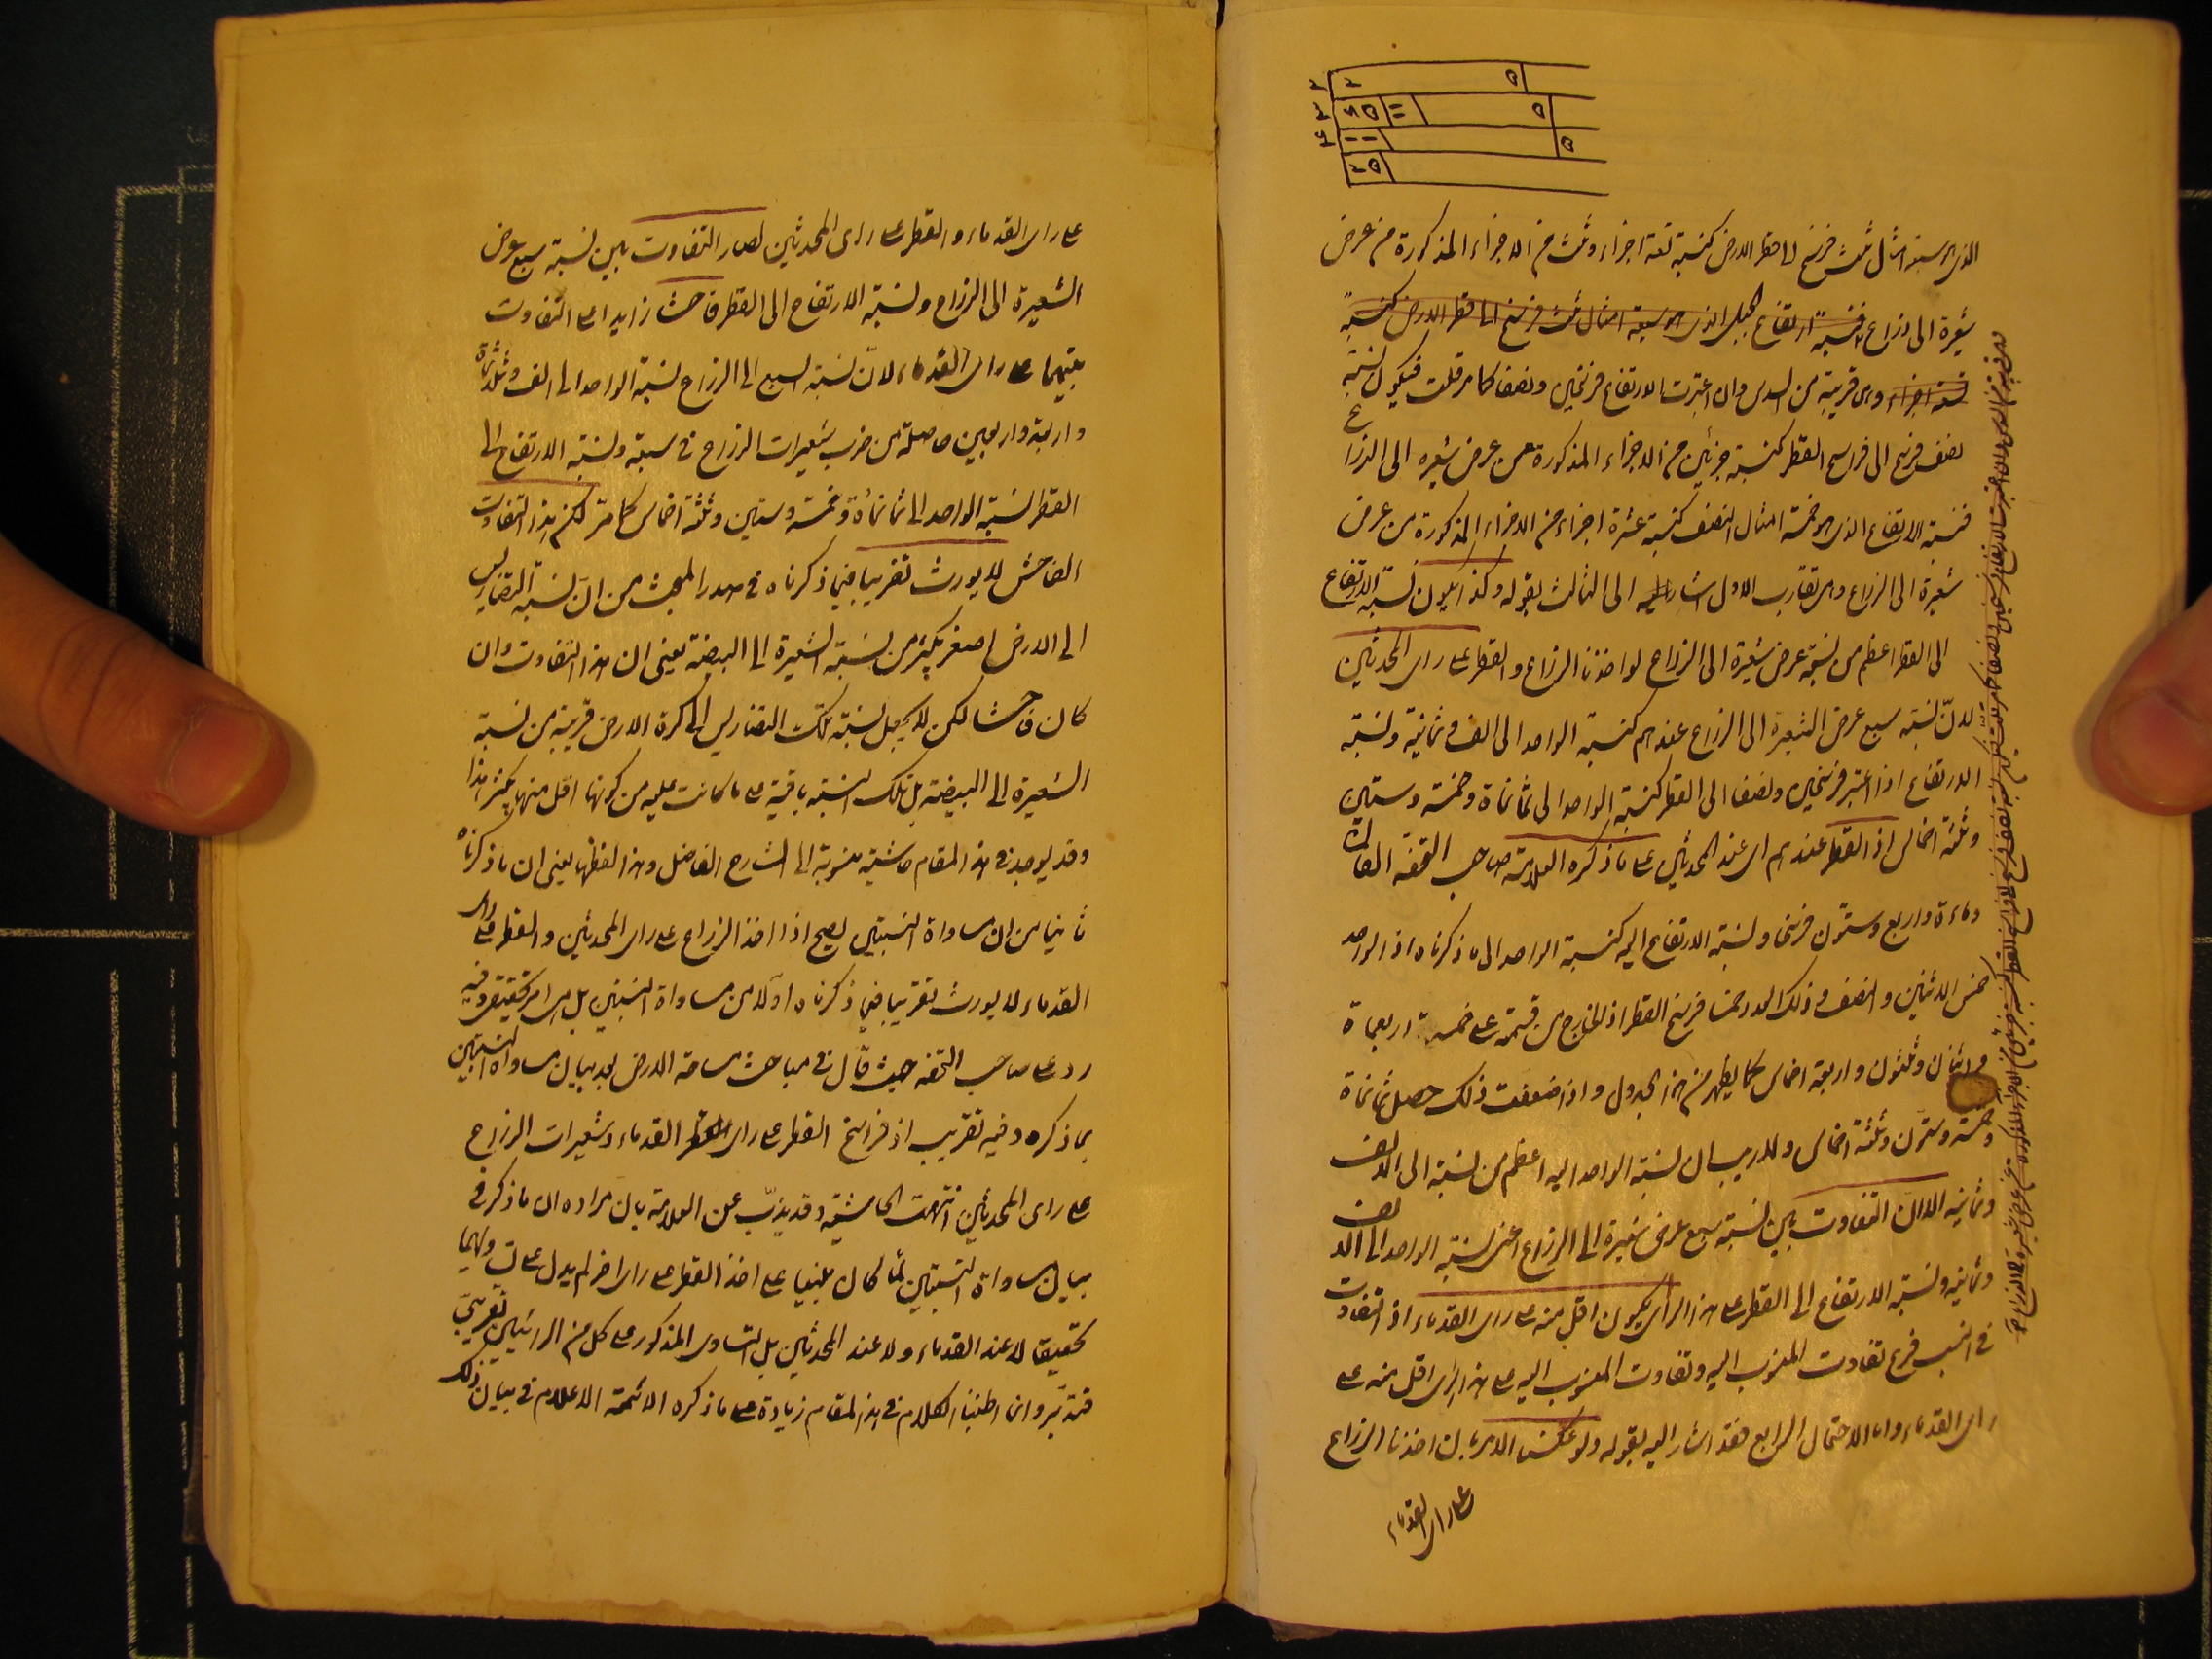 الذى هو سبعة امثال ثلث فرسخ الى قطر الارض كنسبة تسعة اجزاء وثلث من الاجزاء المذكورة من عرض
شعيرة الى ذراع فنسبة ارتفاع الجبل الذى هو سبعة امثال ثلث فرسخ الى قطر الارض كنسبة
تسعة اجزاء وهى قريبة من السدس وان اعتبرت الارتفاع فرسخين ونصفا كما مر قلت فيكون نسبة
نصف فرسخ الى فراسخ القطر كنسبة جزئين من الاجزاء المذكورة من عرض شعيرة الى الذراع
فنسبة الارتفاع الذى هو خمسة امثال النصف كنسبة عشرة اجزاء من الاجزاء المذكورة من عرض
شعيرة الى الذراع وهى تقارب الاول اشار اليه الى الثالث بقوله وكذا يكون نسبة الارتفاع
الى القطر اعظم من نسبة عرض شعيرة الى الذراع لو اخذنا الذراع والقطر على راى المحدثين
لان نسبة سبع عرض الشعيرة الى الذراع عندهم كنسبة الواحد الى الف وثمانية ونسبة
الارتفاع اذا اعتبر فرسخين ونصفا الى القطر كنسبة الواحد الى ثمانمائة وخمسة وستين
وثلثة اخماس اذ القطر عندهم اى عند المحدثين على ما ذكره العلامة صاحب التحفة الفان
ومائة واربع وستون فرسخا ونسبة الارتفاع اليه كنسبة الواحد الى ما ذكرناه اذ الواحد
خمس الاثنين والنصف وذلك لان خمس فرسخ القطر اذ الخارج من قسمته على خمسة اربعمائة
واثنان وثلثون واربعة اخماس كما يظهر من هذا الجدول واذا ضوعفت ذلك حصل ثمانمائة
وخمسة وستون وثلثة اخماس ولا ريب ان نسبة الواحد اليه اعظم من نسبته الى الالف
وثمانية الا ان التفاوت بين نسبة سبع عرض شعيرة الى الذراع اعنى نسبة الواحد الى الالف
وثمانية ونسبة الارتفاع الى القطر على هذا الرأى يكون اقل منه على راى القدماء اذ التفاوت
فى النسب فرع تفاوت المنسوب اليه وتفاوت المنسوب اليه على هذا الراى اقل منه على
راى القدماء واما الاحتمال الرابع فقد اشار اليه بقوله ولو عكسنا الامر بان اخذنا الذراع
على راى القدماء
على راى القدماء والقطر على راى المحدثين لصار التفاوت بين نسبة سبع عرض
الشعيرة الى الذراع ونسبة الارتفاع الى القطر فاحشا زايدا على التفاوت
بينهما على راى القدماء لان نسبة السبع الى الذراع نسبة الواحد الى الف وثلثمائة
واربعة واربعين حاصلة من ضرب شعيرات الذراع فى سبعة ونسبة الارتفاع الى
القطر نسبة الواحد الى ثمانمائة وخمسة وستين وثلثة اخماس كما مر لكن هذا التفاوت
الفاحش لا يورث تقريبا فيما ذكرناه فى صدر المبحث من ان نسبة التضاريس
الى الارض اصغر بكثير من نسبة الشعيرة الى البيضة يعنى ان هذا التفاوت وان
كان فاحشا لكن لا يجعل نسبة تلك التضاريس الى كرة الارض قريبة من نسبة
الشعيرة الى البيضة بل تلك النسبة باقية على ما كانت عليه من كونها اقل منها بكثير هذا
وقد يوجد فى هذا المقام حاشية منسوبة الى الشارح الفاضل وهذا لفظها يعنى ان ما ذكرناه
ثانيا من ان مساواة النسبتين يصح اذا اخذ الذراع على راى المحدثين والقطر على راى
القدماء لا يورث تقريبا فيما ذكرناه اولا من مساواة النسبتين بل هى امر تحقيقى وفيه
رد على صاحب التحفة حيث قال فى مباحث مساحة الارض بعد بيان مساواة النسبتين
بما ذكره وفيه تقريب اذ فراسخ القطر على راى القدماء وشعيرات الذراع
على راى المحدثين انتهت الحاشية وقد يذب عن العلامة بان مراده ان ما ذكر فى
بيان مساواة النسبتين لما كان مبنيا على اخذ القطر على راى اخر لم يدل على تساويهما
تحقيقا لا عند القدماء ولا عند المحدثين بل التساوى المذكور على كل من الرائيين تقريبى
فتدبر وانما اطنبنا الكلام فى هذا المقام زيادة على ما ذكره الائمة الاعلام فى بيان ذلك